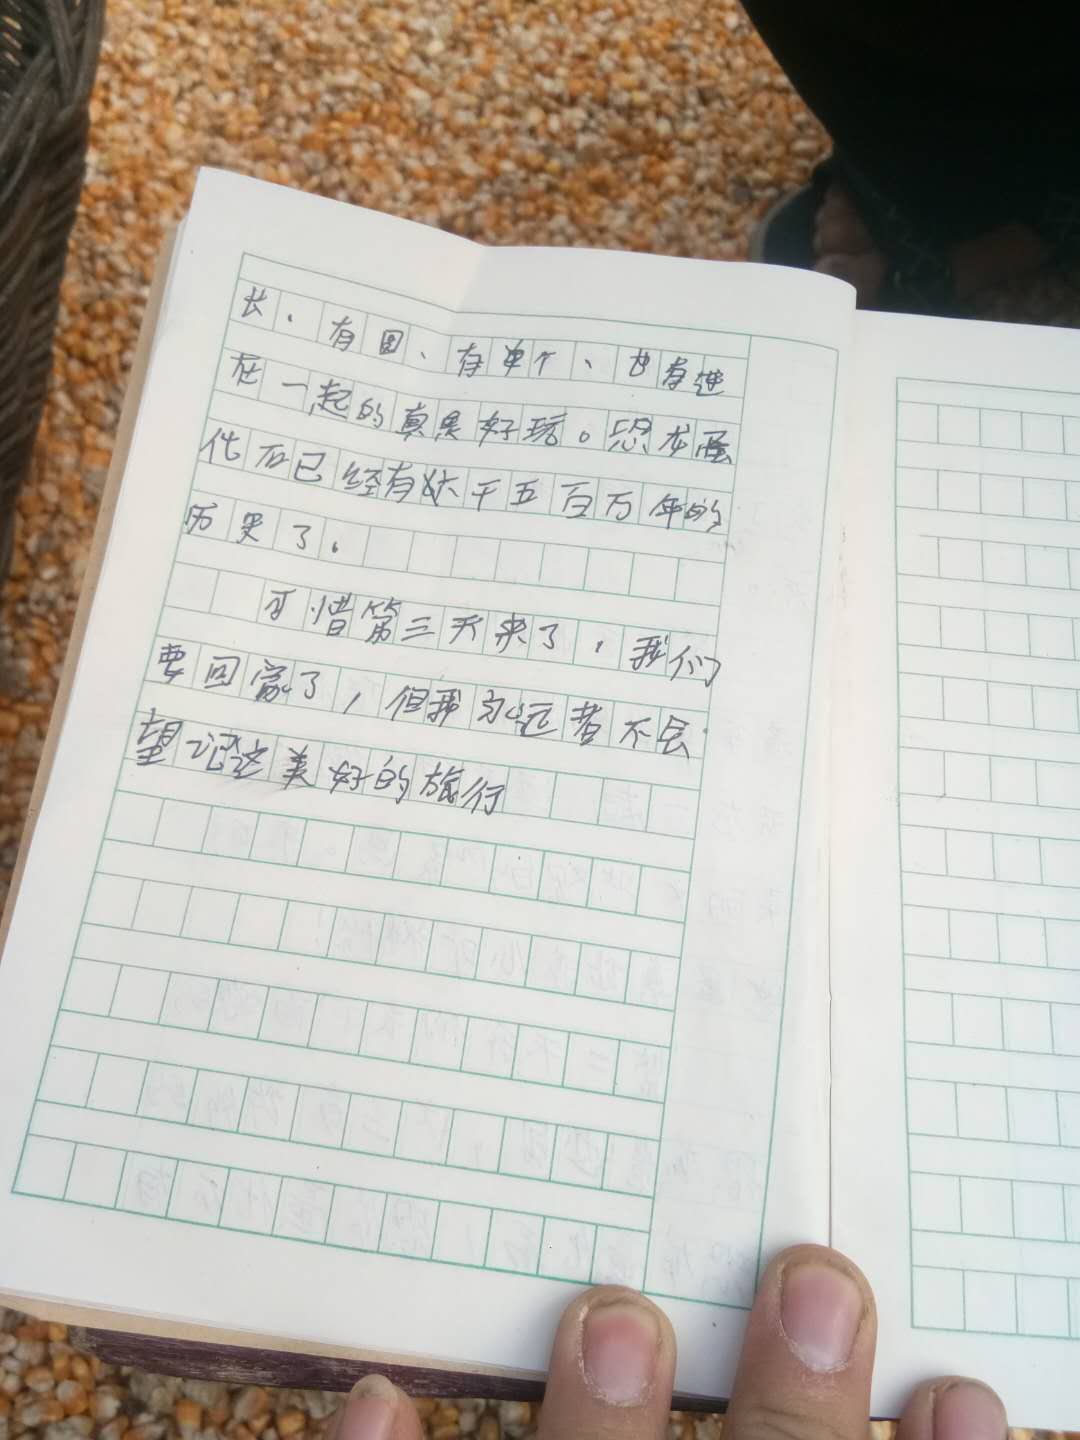 长.有圆、有单个、也有连
在一起的真是好玩。恐龙蛋
化石已经有六千五百万年的
历史了.
可惜第三天来了，我们
要回家了，但我永远者不会
望记这美好的旅行